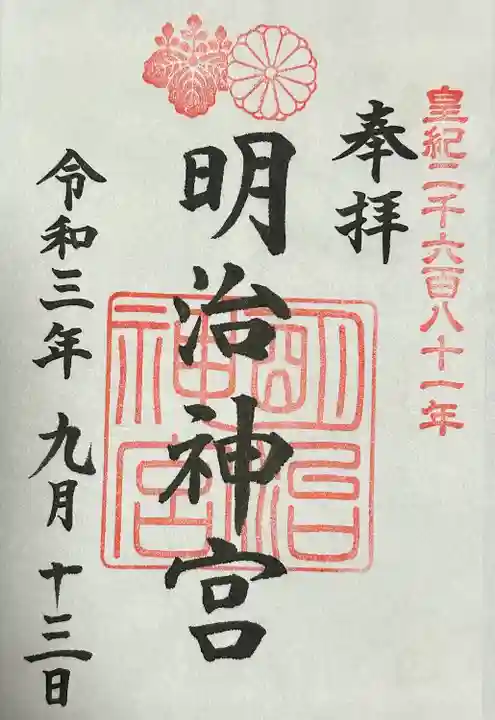 皇紀二千六百八十一年
奉拝
明治神宮
明治神宮
令和三年九月十三日